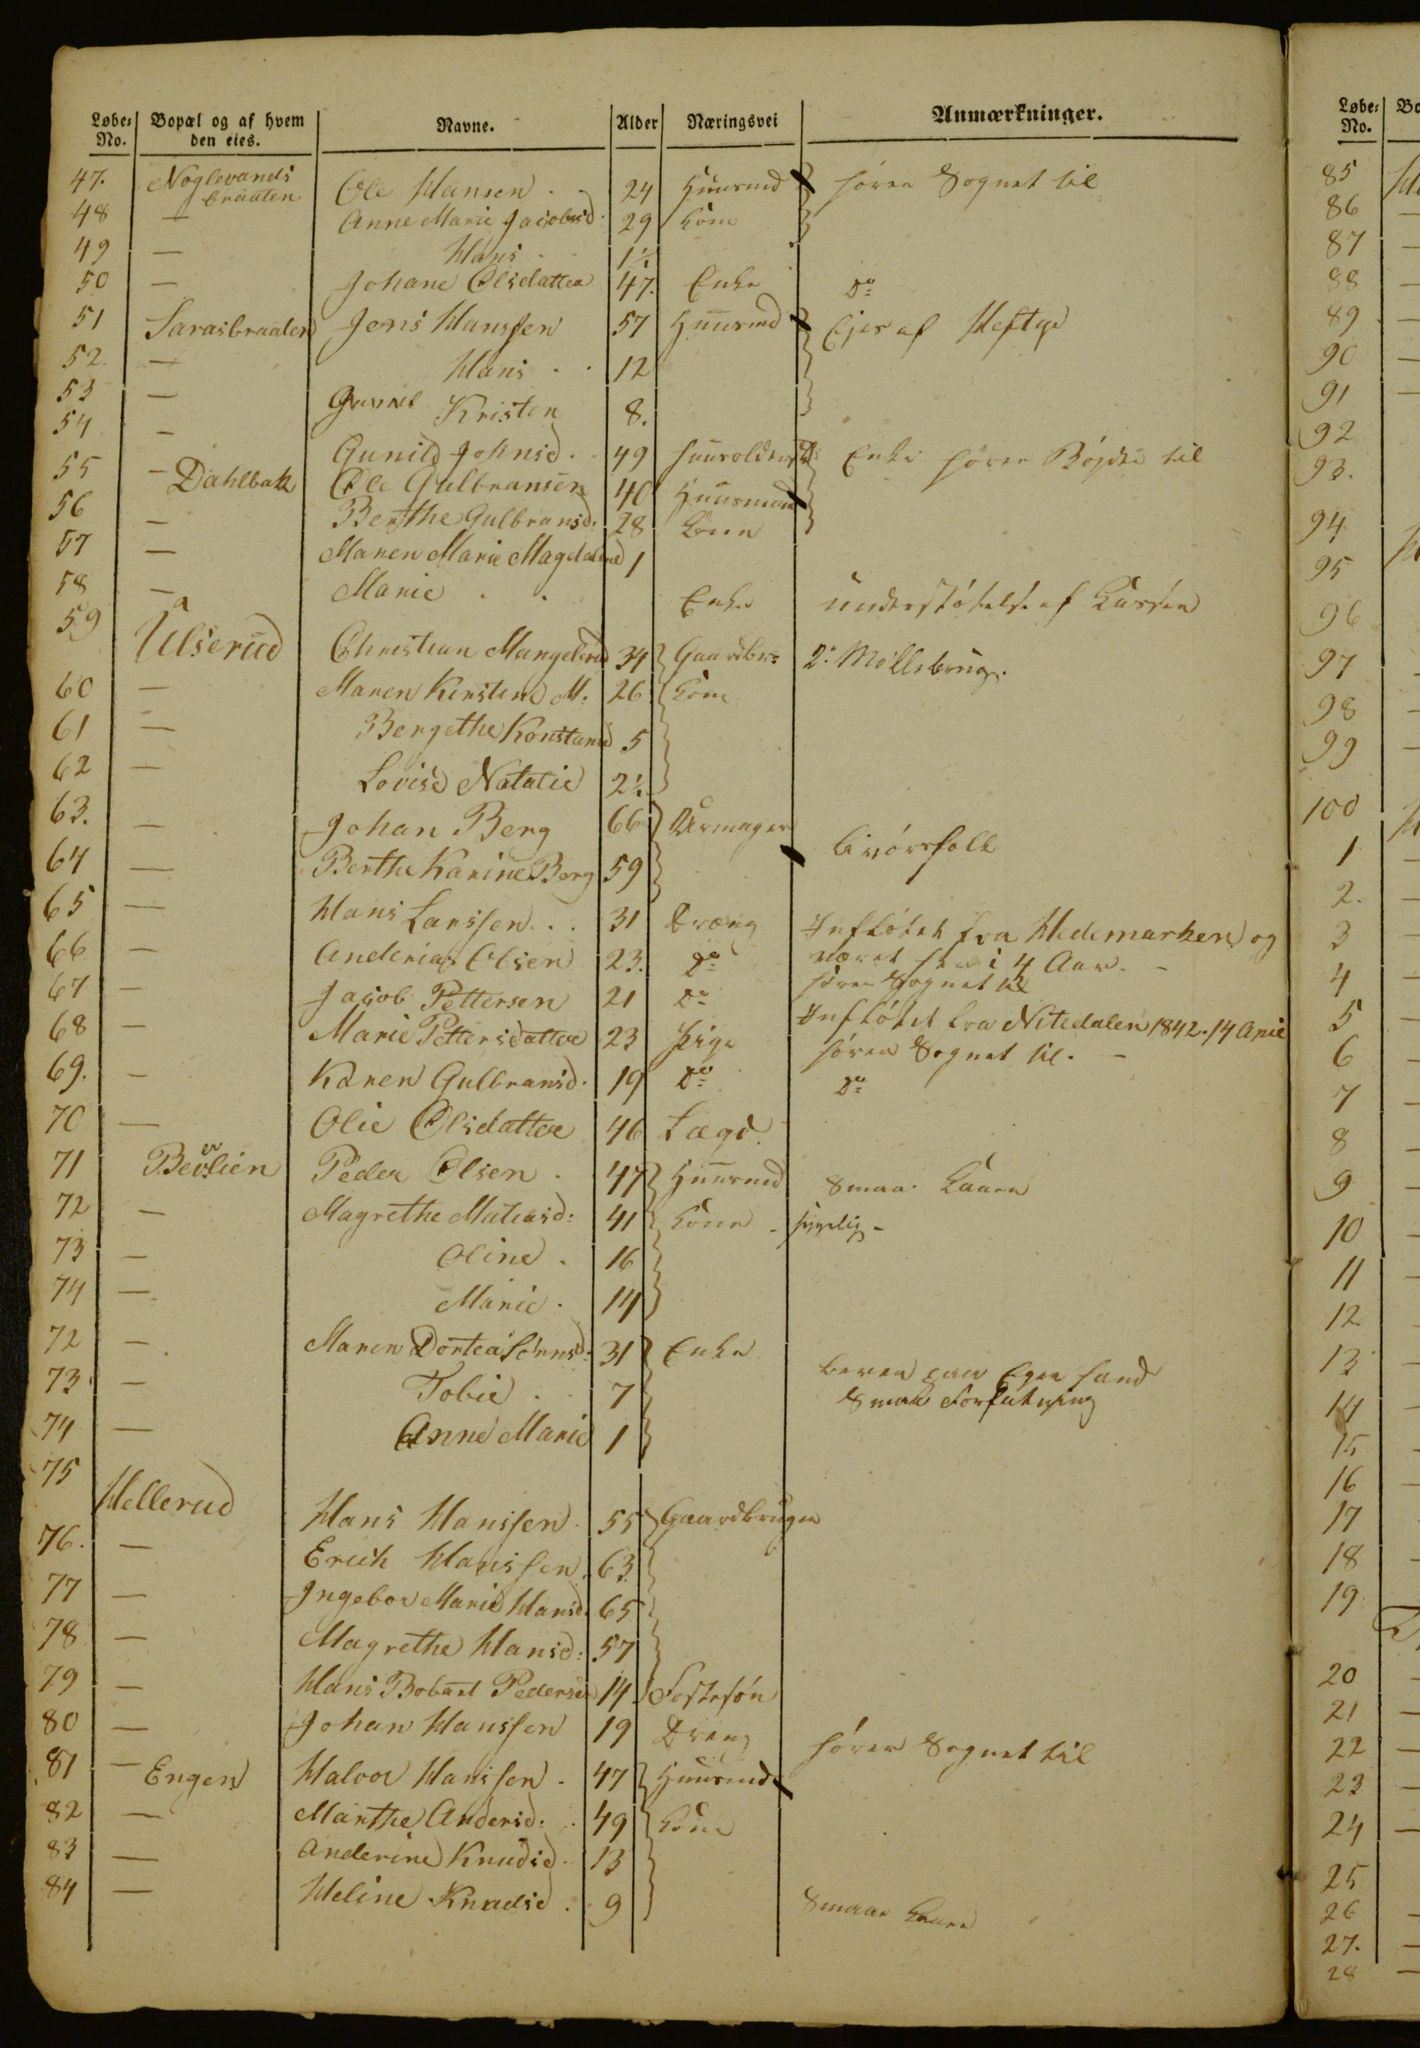 Løbe- No. Bopæl og af hvem den eies. Navne. Alder Næringsvei Anmærkninger.
47. Nøglevands braaten Ole Hansen 24 Huusmd hører Sognet til
48 — Anne Marie Jacobsd. 29 kone
49 — Hans 1½
50 — Johane Olsdatter 47. Enke Do
51 Sarasbraaten Jens Hanssen 57 Huusmd Ejes af Heftye
52. — Hans 12
53 — Kristen 8.
54 — Gunild Johnsd. 49 Enke hører Bøjden til
55 — Dahlbak Ole Gulbransen 40 Huusmand
56 — Berthe Gulbransd. 28 kone
57 — Maren Marie Magdalene 1
58 — Marie Enke understøttelse af Kassen
59 Ulserud Christian Mangelrud 34 Gaardbr: 2: Møllebrug.
60 — Maren Kirstine M. 26 kone
61 — Bergethe Konstance 5
62 — Lovise Natalie 2½
63. — Johan Berg 66 Urmager
64 — Berthe Karine Berg 59
65 — Hans Larssen 31 Dræng Indfløtet fra Hedemarken og
været her i 4 Aar. —
66 — Anderias Olsen 23. Do hører Sognet til
67 — Jacob Pettersen 21 Do Indfløtet fra Nitedalen 1842. 14 April
68 — Marie Pettersdatter 23 Pige hører Sognet til. —
69. — Karen Gulbransd. 19 Do Do
70 — Olie Olsdatter 46 Lægd.
71 Beverlien Peder Olsen 47 Huusmd Smaa Kaar
72 — Magrethe Matiasd: 41 kone - sygelig -
73 — Oline 16
74 — Marie 14
72 — Maren Dortea Sørensd: 31 Enke
73 — Tobie 7 Lever paa Egen Haand
Smaa Forfatning
74 — Anne Marie 1
75 Hellerud Hans Hanssen 55 Gaardbruger
76. — Erich Hanssen 63.
77 — Ingebor Marie Hansd. 65
78 — Magrethe Hansd: 57
79 — Hans Pedersen 14 Fostersøn
80 — Johan Hanssen 19 Dreng hører Sognet til
81 — Engen Halvor Hanssen 47 Huusmd
82 — Marthe Andersd: 49 kone
83 — Anderine Knudsd. 13
84 — Heline Knudsd. 9 Smaa Kaar
Løbe- No.
85
86
87
88
89
90
91
92
93.
94
95
96
97
98
99
100
1
2.
3
4
5
6
7
8
9
10
11
12
13
14
15
16
17
18
19
20
21
22
23
24
25
26
27.
28